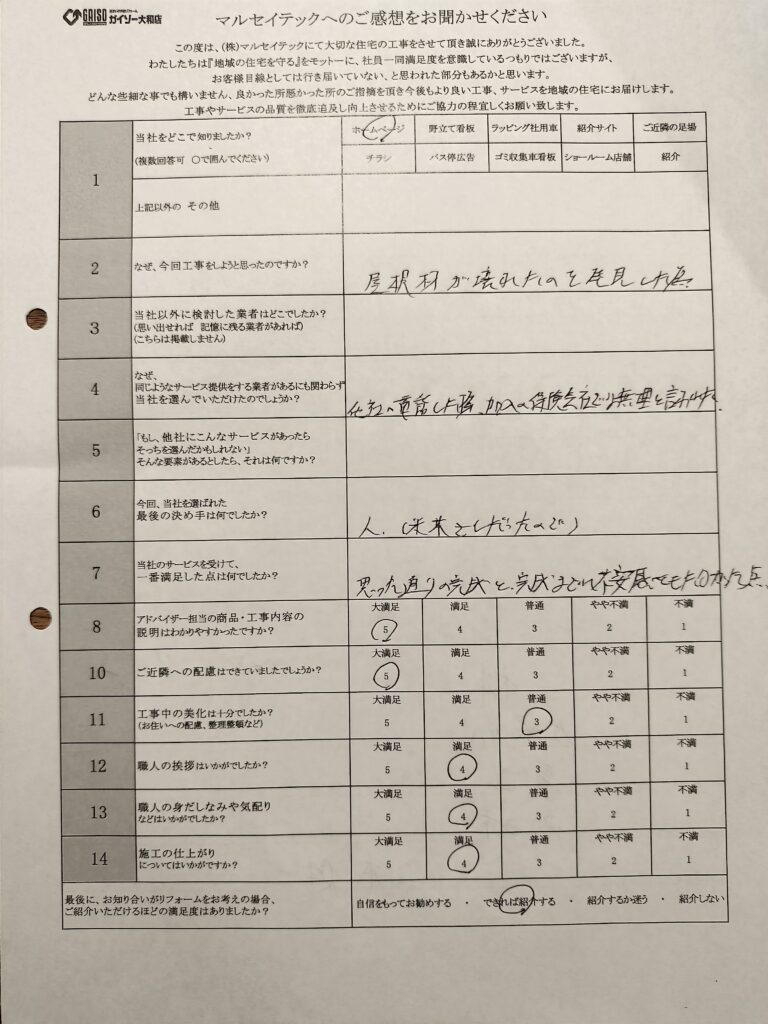 GAISO
ガイソー大和店
マルセイテックへのご感想をお聞かせください
この度は、(株)マルセイテックにて大切な住宅の工事をさせて頂き誠にありがとうございました。
わたしたちは『地域の住宅を守る』をモットーに、社員一同満足度を意識しているつもりではございますが、
お客様目線としては行き届いていない、と思われた部分もあるかと思います。
どんな些細な事でも構いません、良かった所悪かった所のご指摘を頂き今後もより良い工事、サービスを地域の住宅にお届けします。
工事やサービスの品質を徹底追及し向上させるためにご協力の程宜しくお願い致します。
1
当社をどこで知りましたか?
(複数回答可 ○で囲んでください)
ホームページ 野立て看板 ラッピング社用車 紹介サイト ご近隣の足場
チラシ バス停広告 ゴミ収集車看板 ショールーム店舗 紹介
上記以外の その他
2
なぜ、今回工事をしようと思ったのですか?
屋根材が壊れたのを発見した為
3
当社以外に検討した業者はどこでしたか?
(思い出せれば 記憶に残る業者があれば)
(こちらは掲載しません)
4
なぜ、
同じようなサービス提供をする業者があるにも関わらず
当社を選んでいただけたのでしょうか?
他社へ電話した際、加入の保険会社では無理と言われた
5
「もし、他社にこんなサービスがあったら
そっちを選んだかもしれない」
そんな要素があるとしたら、それは何ですか?
6
今回、当社を選ばれた
最後の決め手は何でしたか?
人.
7
当社のサービスを受けて、
一番満足した点は何でしたか?
思った通りの完成と、完成までに不安感 点
8
アドバイザー担当の商品・工事内容の
説明はわかりやすかったですか?
大満足 満足 普通 やや不満 不満
5 4 3 2 1
10
ご近隣への配慮はできていましたでしょうか?
大満足 満足 普通 やや不満 不満
5 4 3 2 1
11
工事中の美化は十分でしたか?
(お住いへの配慮、整理整頓など)
大満足 満足 普通 やや不満 不満
5 4 3 2 1
12
職人の挨拶はいかがでしたか?
大満足 満足 普通 やや不満 不満
5 4 3 2 1
13
職人の身だしなみや気配り
などはいかがでしたか?
大満足 満足 普通 やや不満 不満
5 4 3 2 1
14
施工の仕上がり
についてはいかがですか?
大満足 満足 普通 やや不満 不満
5 4 3 2 1
最後に、お知り合いがリフォームをお考えの場合、
ご紹介いただけるほどの満足度はありましたか?
自信をもってお勧めする ・ できれば紹介する ・ 紹介するか迷う ・ 紹介しない